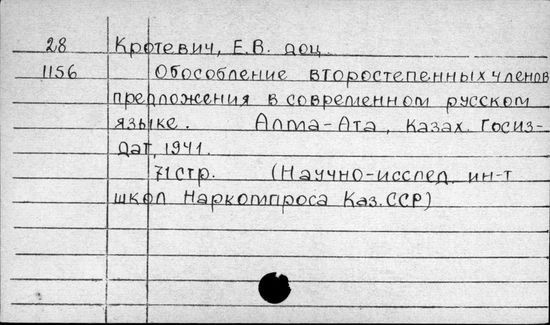 28 Кротевич, Е.В. доц.
1156 Обособление второстепенных членов
предложения в современном русском
языке. Алма-Ата, Казах. Госиз-
дат, 1941.
71 стр. (Научно-исслед. ин-т
школ Наркомпроса Каз.ССР)